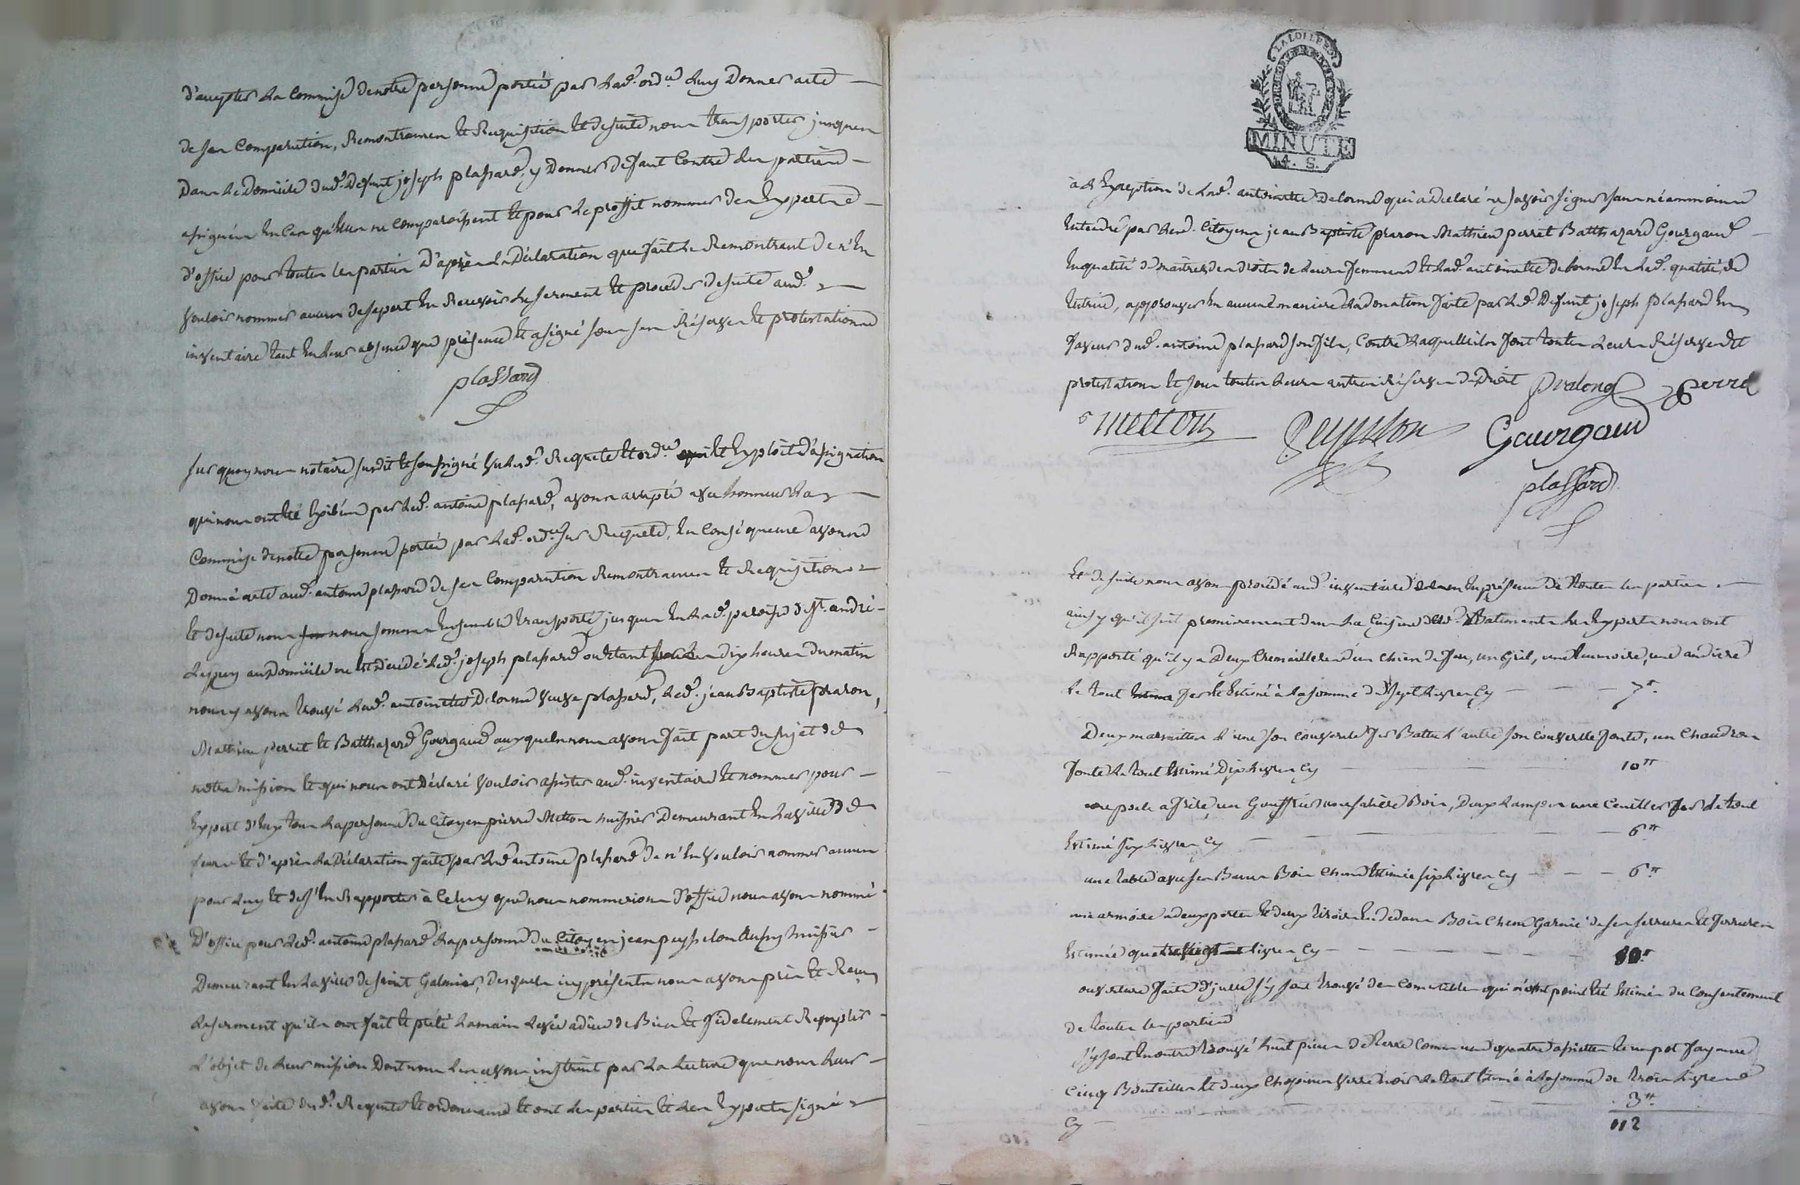 d'accepter la commise de notre personne portée par lad. ord.ce luy donner acte
de sa comparution, Remontrances et Requisition et de suitte nous transporter jusques
Dans le Domicile dud. Defunt joseph plassard, y Donner defaut contre les parties
assignées En cas qu'elles ne comparoissent et pour le proffit nommer des Experts
d'office pour toutes les parties D'après la Déclaration que fait le Remontrant de n'En
vouloir nommer aucun de sa part En Recevoir le serment et proceder de suite aud.
inventaire tant En leur absence que présence et a signé sous ses Réserves et protestations
plassard
sur quoy nous notaire susdit et soussigné vu lad. Requete et ord.ce et Exploit d'assignation
qui nous ont été Exibés par led. antoine plassard, avons accepté avec honneur la
Commise de notre personne portée par lad. ord.ce sur Requete, En conséquence avons
Donné acte aud. antoine plassard de ses Comparution Remontrances et Requisitions
et de suite nous nous sommes Ensemble transporté jusques En lad. paroisse de St. andré
au Domicile où est décédé led. joseph plassard où étant sur les dix heures du matin
nous y avons trouvé lad. antoinette Delorme veuve plassard, led. jean Baptiste praron,
Mathieu perret et Balthazard Gourgaud auxquels nous avons fait part du sujet de
notre mission et qui nous ont Déclaré vouloir assister aud. inventaire et nommer pour
Expert d'Eux tous la personne du Citoyen pierre Metton huissier Demeurant En la ville de
et d'après la Déclaration faite par led. antoine plassard de n'En vouloir nommer aucun
pour luy et de s'En Rapporter à Celuy que nous nommerions D'office nous avons nommé
D'office pour led. antoine plassard la personne du Citoyen jean peysselon aussy huissier
Demeurant En la ville de saint Galmier, desquels icy présents nous avons pris et Reçu
le serment qu'ils ont fait et prêté la main levée à dieu de Bien et fidelement Remplir
L'objet de leur mission Dont nous les avons instruit par la lecture que nous leur
avons faite dud. Requete et ordonnance et ont les parties et les Experts signé
LA LOI LE ROI
MINUTE
4. S.
à l'Exception de lad. antoinette Delorme qui a Déclaré ne savoir signer sans néanmoins
Entendre par lesd. Citoyens jean Baptiste praron Mathieu perret Balthazard Gourgaud
En qualité de maitres des droits de leurs femmes et lad. antoinette delorme En lad. qualité de
tutrice, approuver En aucune maniere la donation faite par led. Defunt joseph plassard En
faveur dud. antoine plassard son fils, Contre laquelle ils font toutes leurs Réserves et
protestations et sous toutes leurs autres réserves de Droit Pralong Perret
Metton Peysselon Gourgaud
plassard
Et de suite nous avons procédé aud. inventaire En présence De toutes les parties
ainsy qu'il suit premierement dans la Cuisine desd. Batiments les Experts nous ont
Rapporté qu'il y a Deux Cremailleres un chien de feu, un Gril, une
le tout fer Estimé à la somme de Sept Livres Cy 7#
Deux marmittes l'une son couvercle fer Battu l'autre son couvercle fonte, un Chaudron
fonte le tout Estimé Dix Livres Cy 10#
une poele a frire, un Gouffrier une saliere Bois, Deux Lampes une Cueiller fer le tout
Estimé six Livres Cy 6#
une table avec ses Bancs Bois Chene Estimée six Livres Cy 6#
une armoire a deux portes et deux tiroirs Bois Chene Garnie de ses serrures et ferrures
Estimée quatre vingt livres Cy 80#
ouverture faite d'jcelle s'y sont trouvé des Comestibles qui n'ont point été Estimés du Consentement
de toutes les parties
s'y sont Encore trouvé huit pieces de terre Commune quatre assiettes et un pot fayance
Cinq Bouteilles et deux Chopines verre noir le tout Estimé à la somme de trois Livres
Cy 3#
112